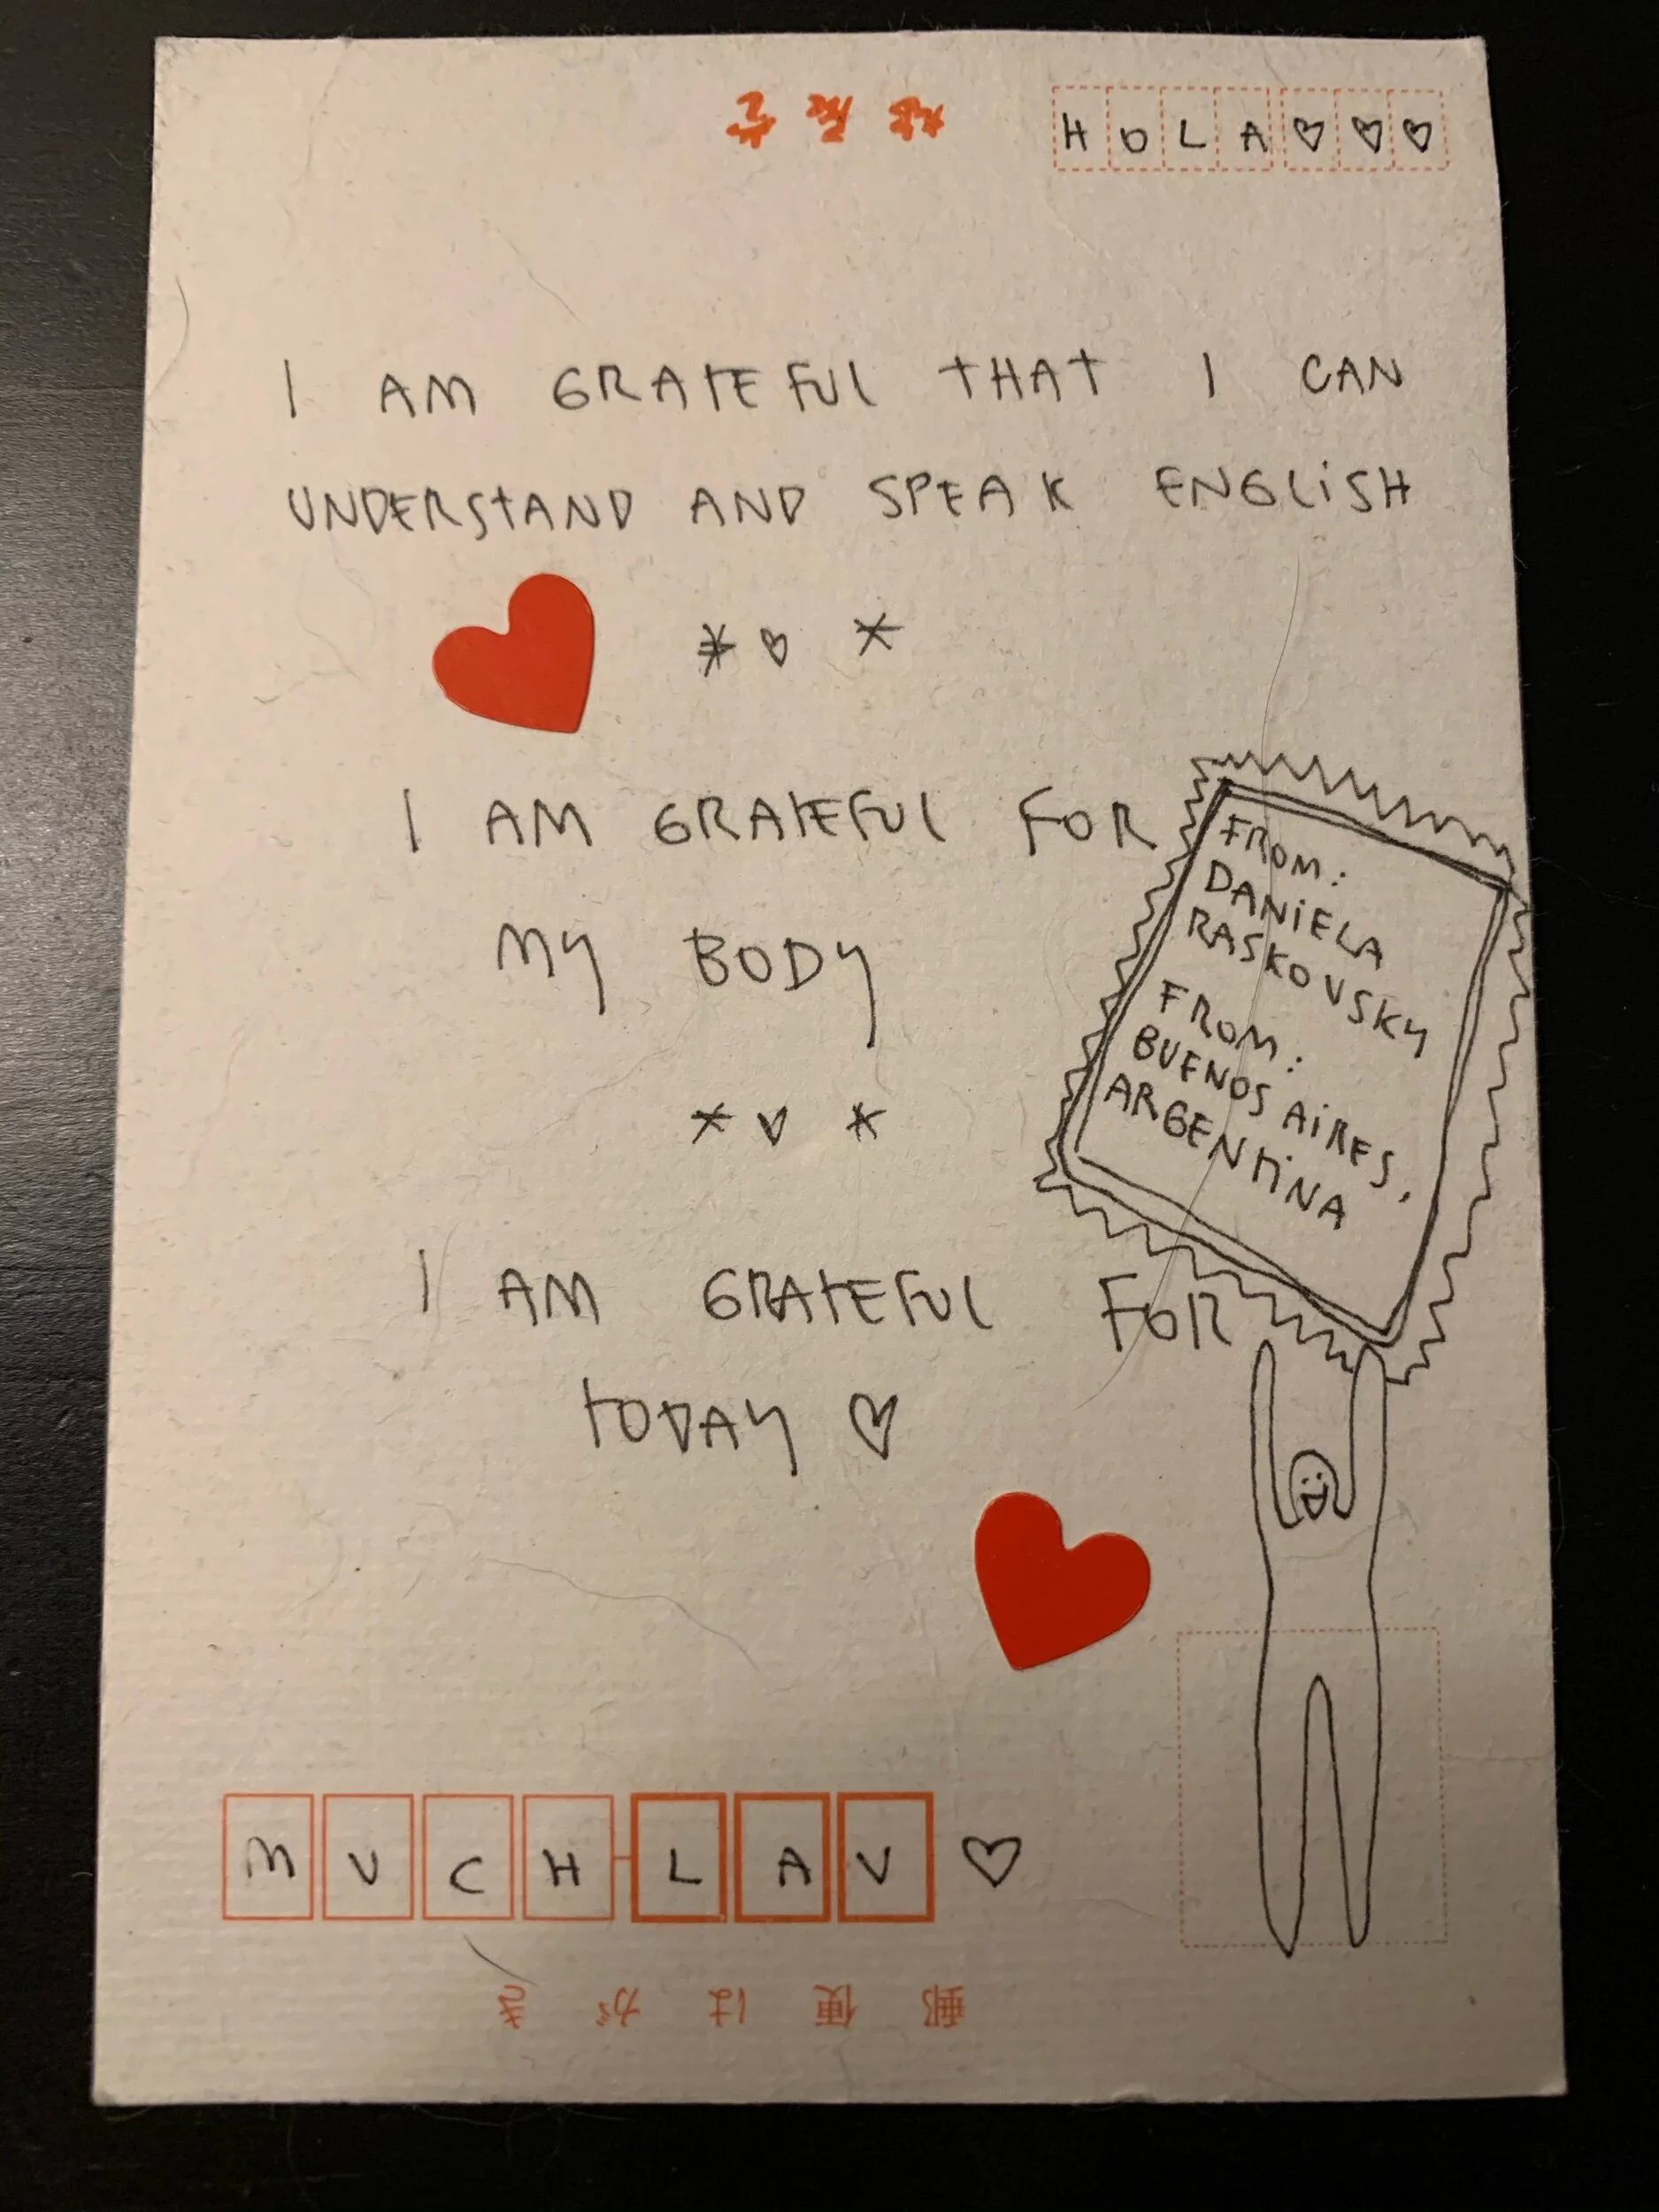 HOLA♡♡♡
I AM GRATEFUL THAT I CAN
UNDERSTAND AND SPEAK ENGLISH
* ♡ *
I AM GRATEFUL FOR
MY BODY
* ♡ *
I AM GRATEFUL FOR
TODAY ♡
FROM:
DANIELA
RASKOVSKY
FROM:
BUENOS AIRES,
ARGENTINA
MUCH LAV ♡
郵便はがき